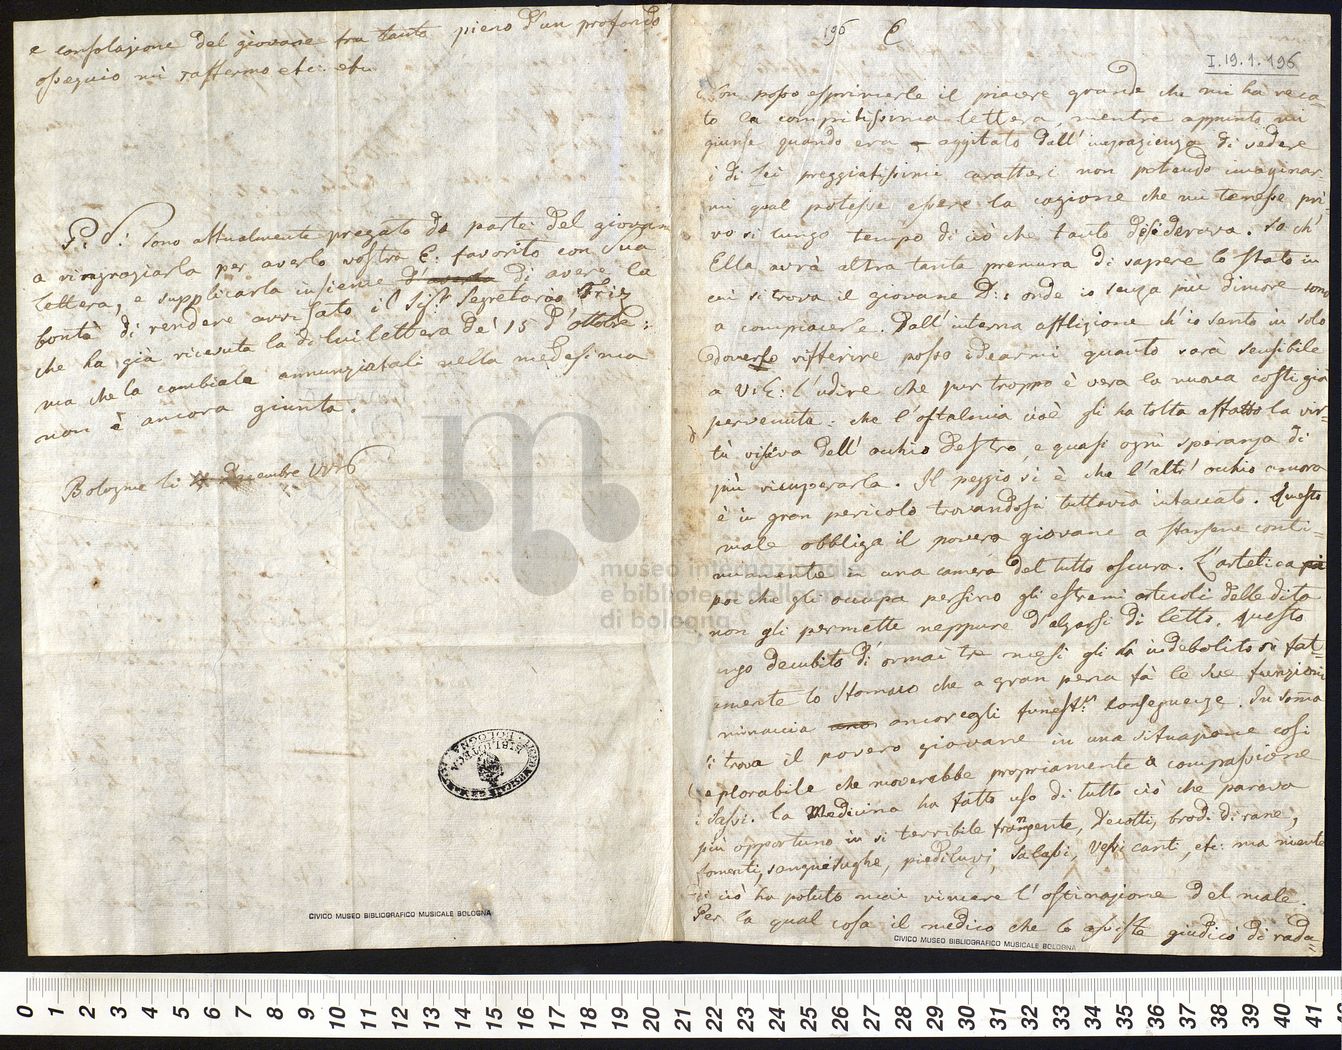 e consolazione del giovane fra tanto pieno d'un profondo
ossequio mi raffermo etc: etc.
P: S: Sono attualmente pregato da parte del giovane
a ringraziarla per averlo vostra E: favorito con sua
lettera, e supplicarla insieme di avere la
bontà di rendere avvisato il Sig.r Segretario
che ha già ricevuta la di lui lettera de' 15 d'ottobre:
ma che la cambiale annunziatali nella medesima
non è ancora giunta.
Bologna li
museo internazionale
e biblioteca della musica
di bologna
CIVICO MUSEO BIBLIOGRAFICO MUSICALE BOLOGNA
196 6
I.19.1.196
Non posso esprimerle il piacere grande che mi ha reca-
to la compitissima lettera, mentre appunto mi
giunse quando era aggitato dall'impazienza di vedere
i di Lei preggiatissimi caratteri non potendo imaginar-
mi qual potesse essere la cagione che mi tenesse pri-
vo si lungo tempo di ciò che tanto desiderava. So ch'
Ella avrà altra tanta premura di sapere lo stato in
cui si trova il giovane D: onde io senza più dimore sono
a compiacerle. Dall'interna afflizione ch'io sento in solo
doverlo rifferire posso idearmi quanto sarà sensibile
a V: E: l'udire che pur troppo è vera la nuova costi già
pervenuta: che l'oftalmia cioè gli ha tolta affatto la vir-
tù visiva dell'occhio destro, e quasi ogni speranza di
più ricuperarla. Il peggio si è che l'altr'occhio ancora
è in gran pericolo trovandosi tuttavia intaccato. Questo
male obbliga il povero giovane a starsene conti-
nuamente in una camera del tutto oscura. L'artetica
poi che gli occupa persino gli estremi articoli delle dita
non gli permette neppure d'alzarsi di letto. Questo
decubito di ormai tre mesi gli ha indebolito si fat-
amente lo stomaco che a gran pena fà le sue funzioni
minaccia ancor egli funest.me conseguenze. In somma
si trova il povero giovane in una situazione così
deplorabile che moverebbe propriamente a compassione
i sassi. La Medicina ha fatto uso di tutto ciò che pareva
più opportuno in si terribile frangente, Decotti, brodi di rane,
fomenti, sanguesughe, pediluvi, salassi, vessicanti, etc: ma niente
di ciò ha potuto mai vincere l'ostinazione del male.
Per la qual cosa il medico che lo assiste giudicò di rada
CIVICO MUSEO BIBLIOGRAFICO MUSICALE BOLOGNA
0 1 2 3 4 5 6 7 8 9 10 11 12 13 14 15 16 17 18 19 20 21 22 23 24 25 26 27 28 29 30 31 32 33 34 35 36 37 38 39 40 41